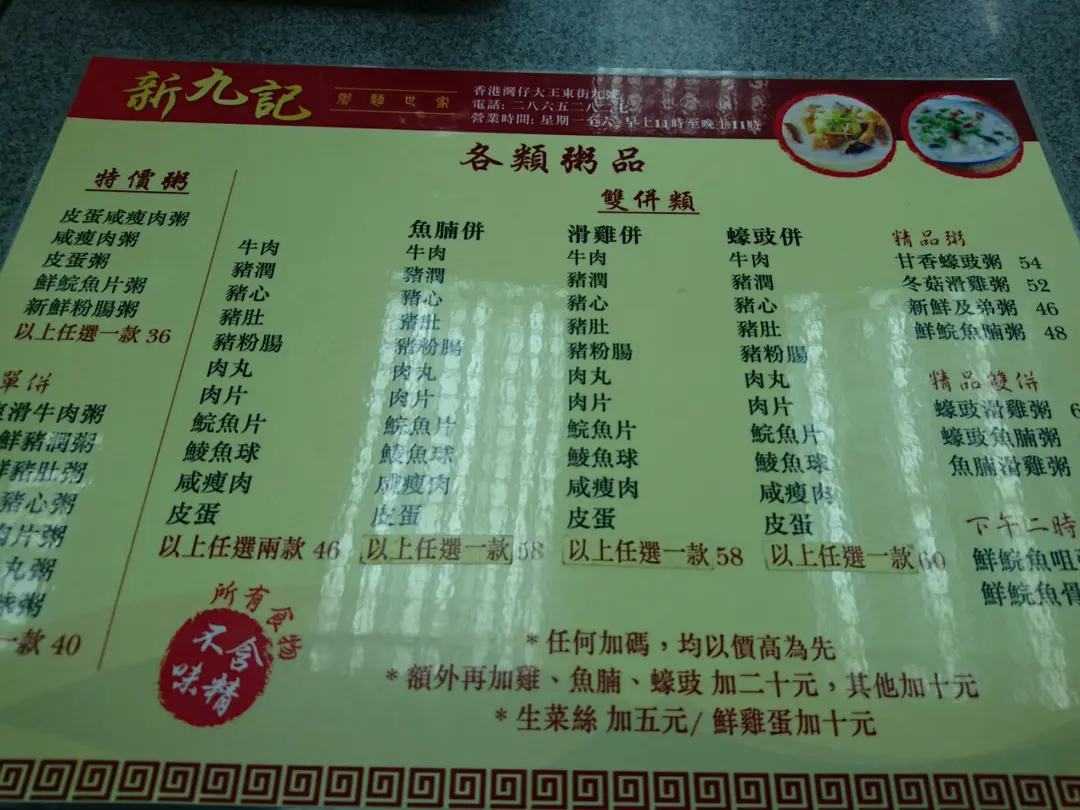 新九記
粥麵世家
香港灣仔大王東街九號
電話: 二八六五二八二七
營業時間: 星期一至六 早上11時至晚上11時
各類粥品
特價粥
皮蛋咸瘦肉粥
咸瘦肉粥
皮蛋粥
鮮鯇魚片粥
新鮮粉腸粥
以上任選一款 36
單併
滑牛肉粥
鮮豬潤粥
豬肚粥
豬心粥
肉片粥
丸粥
粥
一款 40
雙併類
牛肉
豬潤
豬心
豬肚
豬粉腸
肉丸
肉片
鯇魚片
鯪魚球
咸瘦肉
皮蛋
以上任選兩款 46
魚腩併
牛肉
豬潤
豬心
豬肚
豬粉腸
肉丸
肉片
鯇魚片
鯪魚球
咸瘦肉
皮蛋
以上任選一款 58
滑雞併
牛肉
豬潤
豬心
豬肚
豬粉腸
肉丸
肉片
鯇魚片
鯪魚球
咸瘦肉
皮蛋
以上任選一款 58
蠔豉併
牛肉
豬潤
豬心
豬肚
豬粉腸
肉丸
肉片
鯇魚片
鯪魚球
咸瘦肉
皮蛋
以上任選一款 60
精品粥
甘香蠔豉粥 54
冬菇滑雞粥 52
新鮮及弟粥 46
鮮鯇魚腩粥 48
精品雙併
蠔豉滑雞粥
蠔豉魚腩粥
魚腩滑雞粥
下午二時
鮮鯇魚咀
鮮鯇魚骨
所有食物
不含
味精
*任何加碼，均以價高為先
*額外再加雞、魚腩、蠔豉 加二十元，其他加十元
*生菜絲 加五元/ 鮮雞蛋加十元